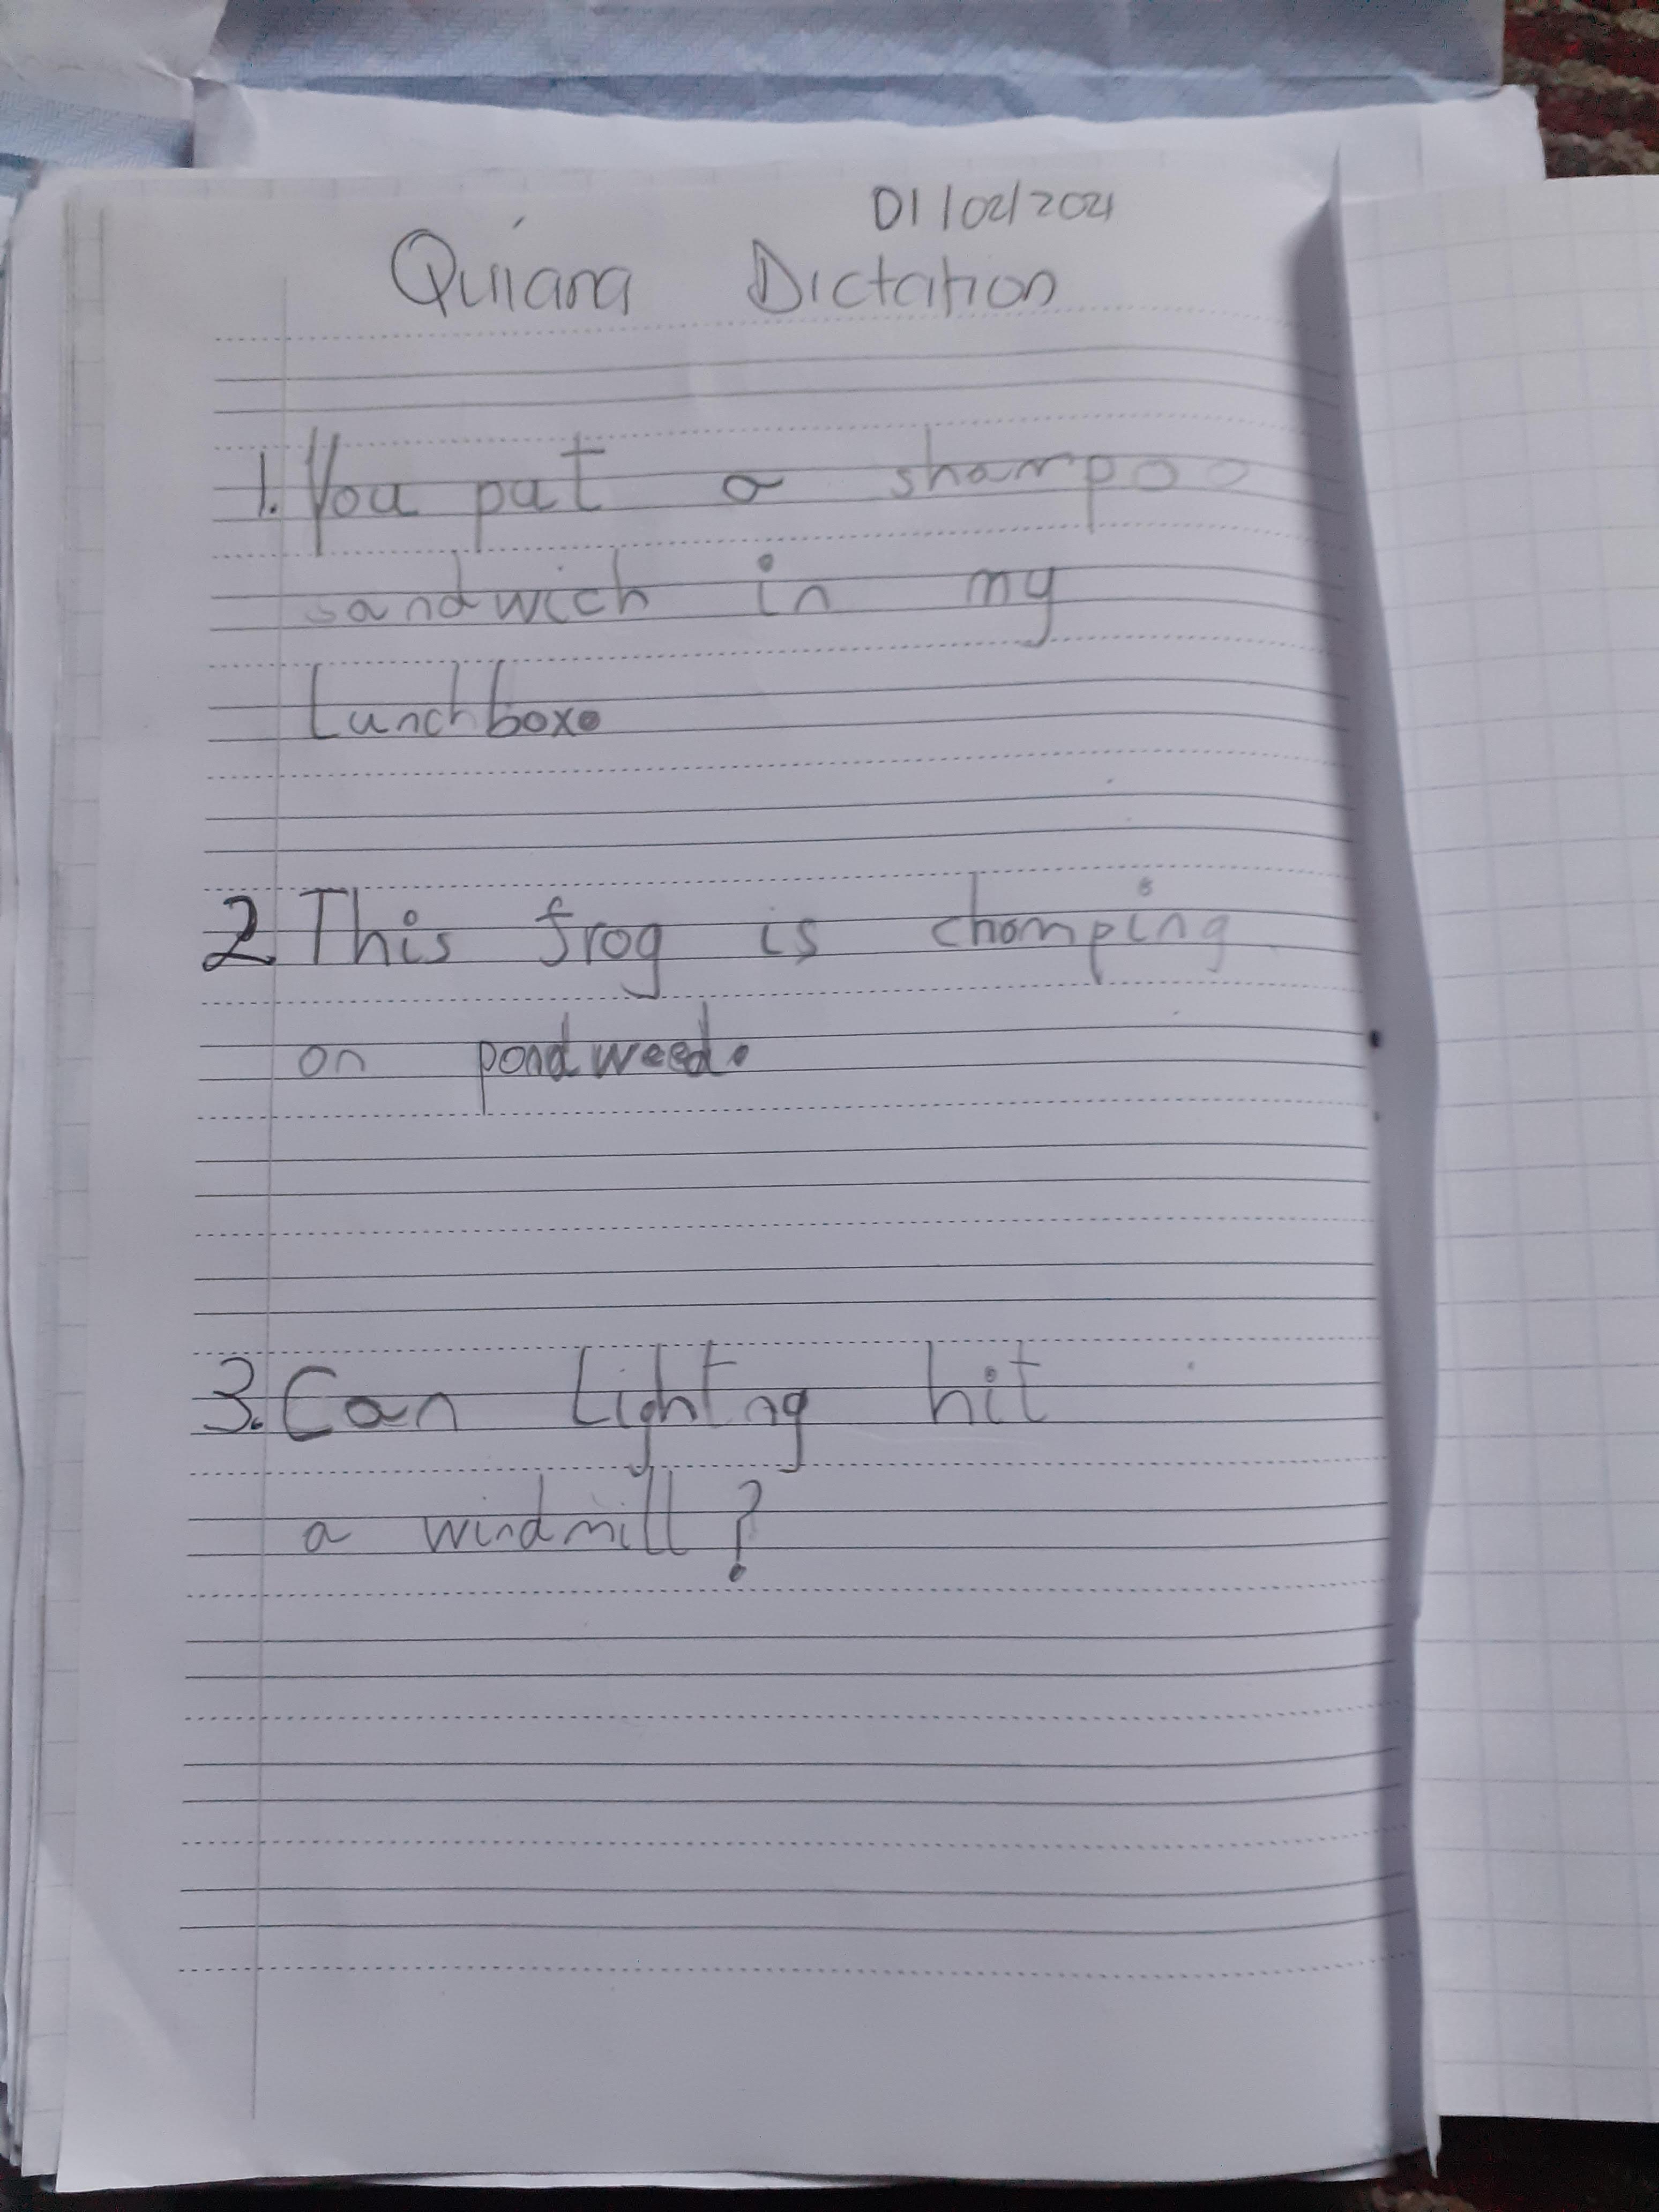 01/02/2021
Quiana Dictation
1. You put a shampoo
sandwich in my
Lunchbox.
2. This frog is chomping
on pondweed.
3. Can Lightng hit
a windmill?